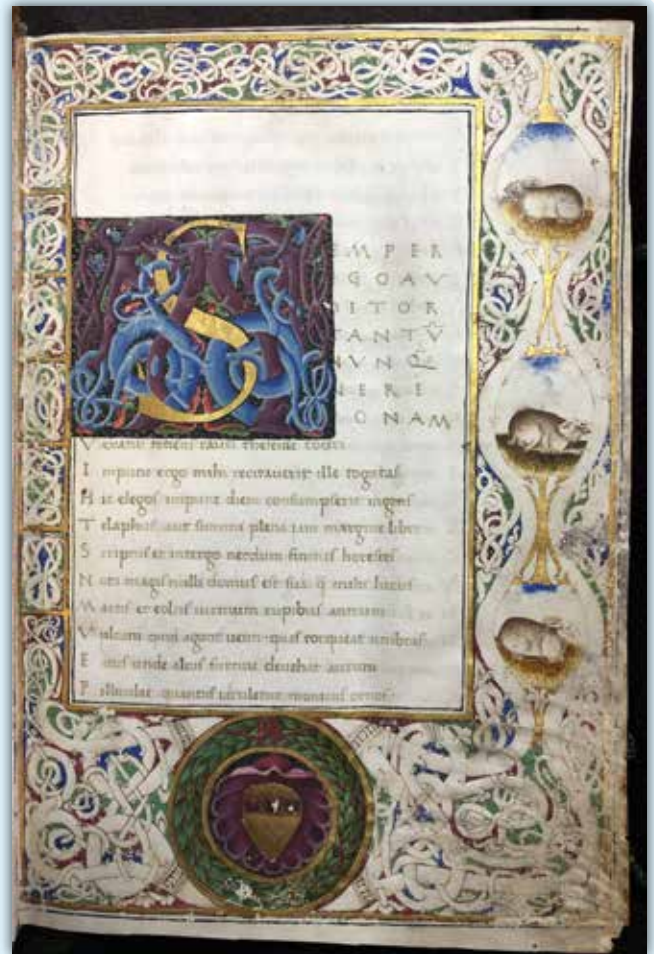 SEMPER
GOAV
DITOR
TANTV̄
NVNQ̃
NERE
PONAM
V totiens rauci theseide
I npune ergo mihi recitauerit ille togatas
H ic elegos inpune diem consumpserit ingens
T elaphus aut summi plena iam margine libri
S criptus et intergo necdum finitus horestes
N ota magis nulli domus est sua q̃ mihi lucus
M artis et eoliis uicinum rupibus antrum
V ulcani quid agant uenti quas torqueat umbras
E unde alius furtiue deuehat aurum
P elliculae quantas iaculetur ornos